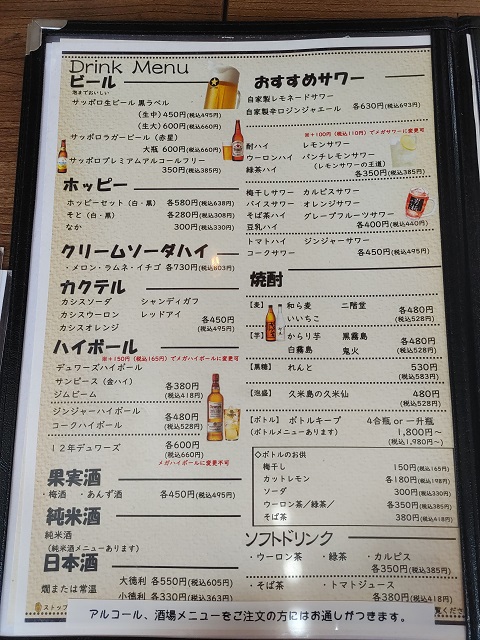 Drink Menu
ビール
泡までおいしい
サッポロ生ビール 黒ラベル
(生中) 450円(税込495円)
(生大) 600円(税込660円)
サッポロラガービール (赤星)
大瓶 600円(税込660円)
サッポロプレミアムアルコールフリー
350円(税込385円)
ホッピー
ホッピーセット (白・黒) 各580円(税込638円)
そと (白・黒) 各280円(税込308円)
なか 300円(税込330円)
クリームソーダハイ
・メロン・ラムネ・イチゴ 各730円(税込803円)
カクテル
カシスソーダ シャンディガフ
カシスウーロン レッドアイ
カシスオレンジ 各450円
(税込495円)
ハイボール
※+150円(税込165円)でメガハイボールに変更可
デュワーズハイボール
サンピース (金ハイ) 各380円
ジムビーム (税込418円)
ジンジャーハイボール 各480円
コークハイボール (税込528円)
12年デュワーズ 各600円
(税込660円)
メガハイボールに変更不可
果実酒
・梅酒 ・あんず酒 各450円(税込495円)
純米酒
純米酒
(純米酒メニューあります)
日本酒
燗または常温 大徳利 各550円(税込605円)
小徳利 各330円(税込363円)
おすすめサワー
自家製レモネードサワー
自家製辛口ジンジャエール 各630円(税込693円)
※+100円(税込110円)でメガサワーに変更可
酎ハイ レモンサワー
ウーロンハイ パンチレモンサワー
緑茶ハイ (レモンサワーの王道)
各350円(税込385円)
梅干しサワー カルピスサワー
バイスサワー オレンジサワー
そば茶ハイ グレープフルーツサワー
豆乳ハイ 各400円(税込440円)
トマトハイ ジンジャーサワー
コークサワー 各450円(税込495円)
焼酎
【麦】 和ら麦 二階堂
いいちこ 各480円
(税込528円)
【芋】 からり芋 黒霧島
白霧島 鬼火 各480円
(税込528円)
【黒糖】 れんと 530円
(税込583円)
【泡盛】 久米島の久米仙 480円
(税込528円)
【ボトル】 ボトルキープ 4合瓶 or 一升瓶
(ボトルメニューあります) 1,800円〜
(税込1,980円〜)
◇ボトルのお供
梅干し 150円(税込165円)
カットレモン 各180円(税込198円)
ソーダ 300円(税込330円)
ウーロン茶/緑茶/ 各350円(税込385円)
そば茶 380円(税込418円)
ソフトドリンク
・ウーロン茶 ・緑茶 ・カルピス
各350円(税込385円)
・そば茶 ・トマトジュース
各380円(税込418円)
ストップ
覧くださ
アルコール、酒場メニューをご注文の方にはお通しがつきます。